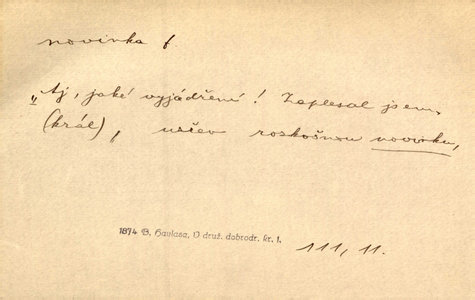 novinka f
„Aj, jaké vyjádření! Zaplesal jsem
(král), uzřev rozkošnou novinku,
1874 B. Havlasa, V druž. dobrodr. kr. 1.
111, 11.